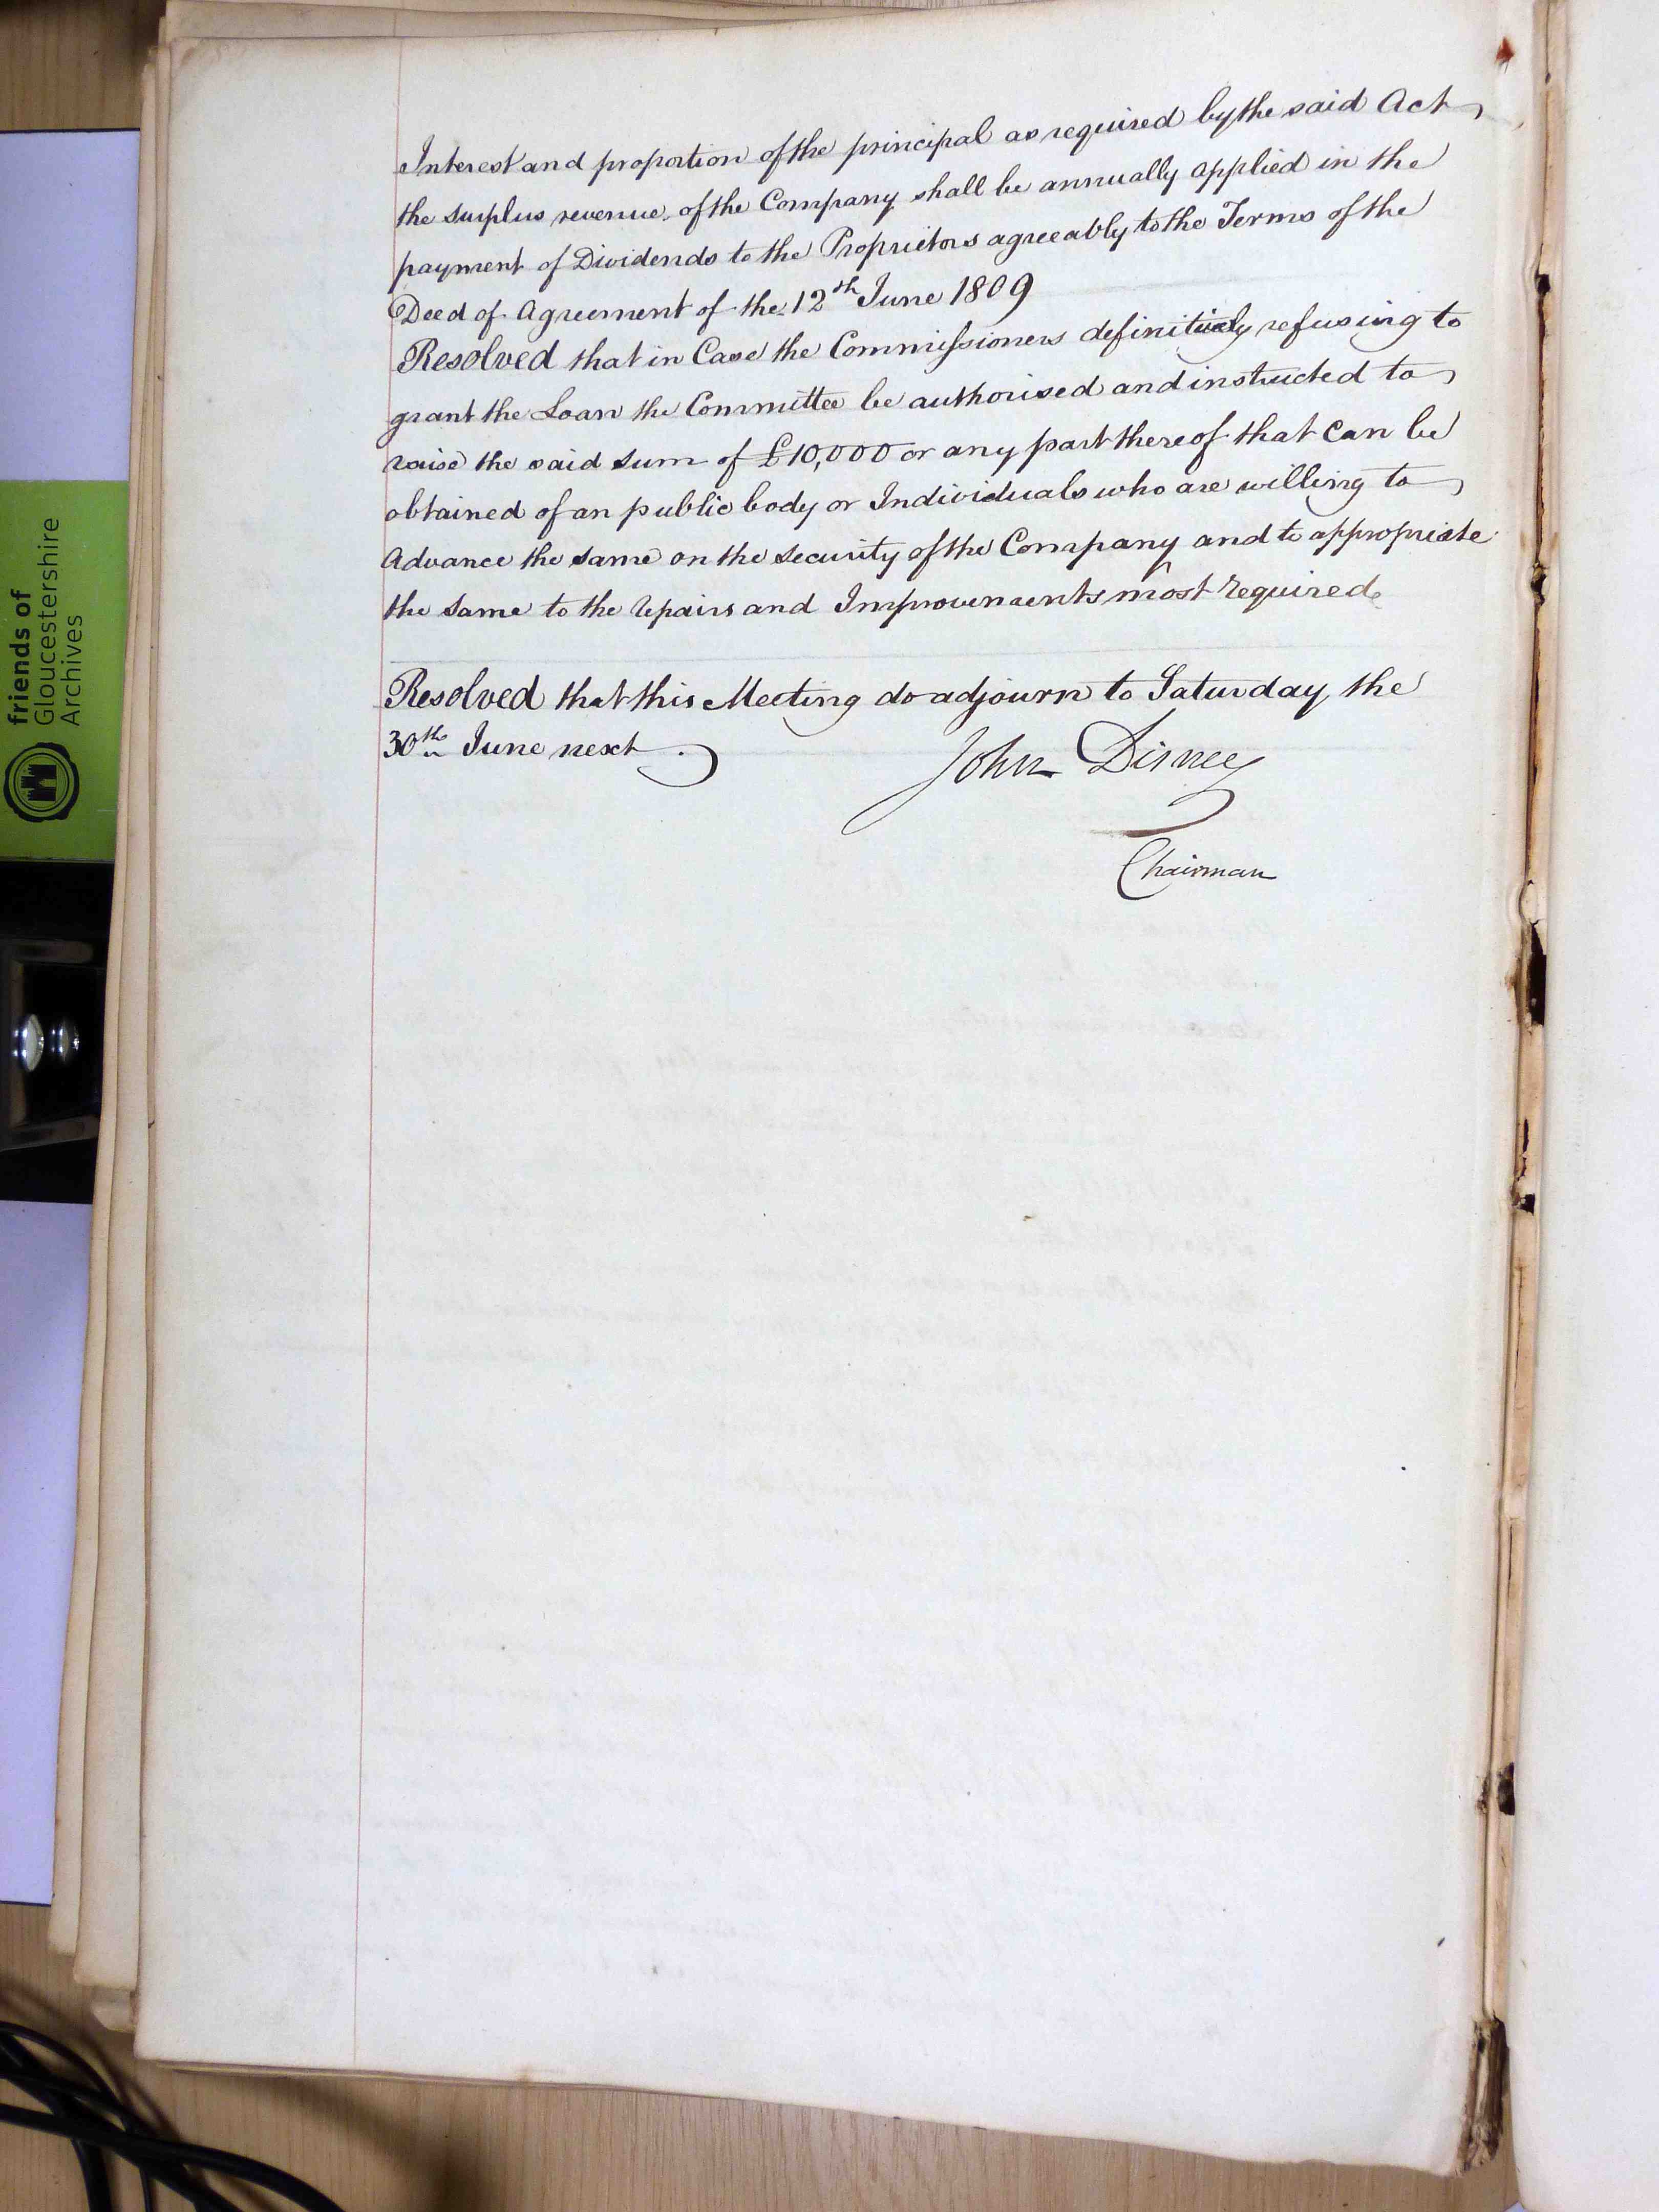 Interest and proportion of the principal as required by the said Act
the surplus revenue of the Company shall be annually applied in the
payment of Dividends to the Proprietors agreeably to the Terms of the
Deed of Agreement of the 12th June 1809
Resolved that in Case the Commissioners definitively refusing to
grant the Loan the Committee be authorised and instructed to
raise the said sum of £10,000 or any part thereof that can be
obtained of an public body or Individuals who are willing to
Advance the same on the security of the Company and to appropriate
the same to the repairs and Improvements most required
Resolved that this Meeting do adjourn to Saturday the
30th June next.
John Disney
Chairman
friends of
Gloucestershire
Archives